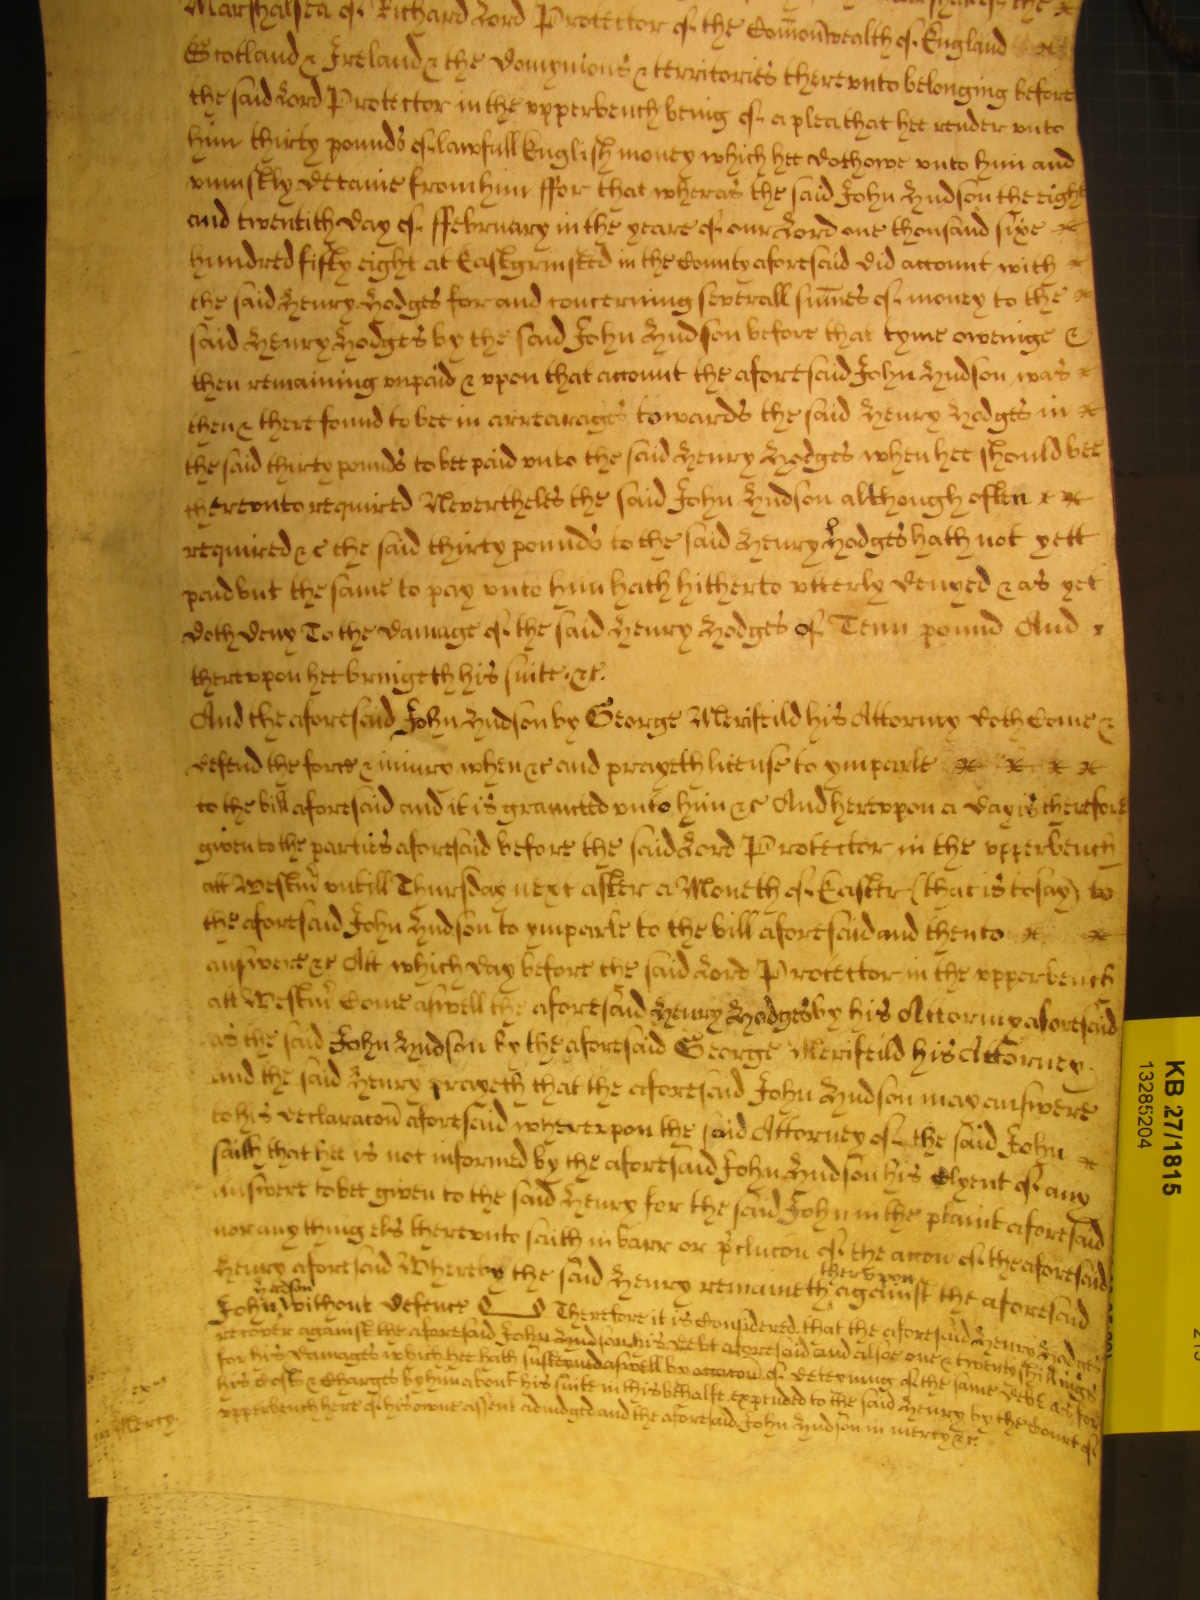 Marshalsea of Richard Lord Protector of the Com̄onwealth of England
Scotland & Ireland & the Domynions & territories therevnto belonging before
the said Lord Protector in the vpperbench being of a plea that hee render vnto
him thirty pounds of lawfull English money which hee doth owe vnto him and
vniustly detaine from him ffor that wheras the said John Hudson the eight
and twentith day of ffebruary in the yeare of our Lord one thousand sixe
hundred fifty eight at Eastgrinsted in the County aforesaid did account with
the said Henry Hodges for and concerning severall sum̄es of money to the
said Henry Hodges by the said John Hudson before that tyme oweinge &
then remaining vnpaid & vpon that account the aforesaid John Hudson was
then & there found to bee in arrearages towards the said Henry Hodges in
the said thirty pounds to bee paid vnto the said Henry Hodges when hee should bee
therevnto required Neverthelesse the said John Hudson although often
required &c the said thirty pounds to the said Henry Hodges hath not yett
paid but the same to pay vnto him hath hitherto vtterly denyed & as yet
doth deny To the damage of the said Henry Hodges of Tenn pound And
therevpon hee bringeth his suite &c.
And the aforesaid John Hudson by George Merifeild his Attorney doth Come &
defend the force & iniury when &c and prayeth license to ymparle
to the bill aforesaid and it is graunted vnto him &c And herevpon a day is therefore
given to the parties aforesaid before the said Lord Protector in the vpperbench
att Westmr vntill Thursday next after a Moneth of Easter (that is to say) to
the aforesaid John Hudson to ymparle to the bill aforesaid and then to
answere &c Att which day before the said Lord Protector in the vpperbench
att Westmr Come aswell the aforesaid Henry Hodges by his Attorny aforesaid
as the said John Hudson by the aforesaid George Merifeild his Attorney
and the said Henry prayeth that the aforesaid John Hudson may answere
to his declaracoñ aforesaid wherevpon the said Attorney of the said John
saith that hee is not informed by the aforesaid John Hudson his Clyent of any
answere to bee given to the said Henry for the said John in the plaint aforesaid
nor any thing els therevnto saith in barr or p̄clucon of the accon of the aforesaid
Henry aforesaid Whereby the said Henry remaineth therevpon against the aforesaid
John Hudson without defence Therefore it is Considered that the aforesaid Henry Hodges
recover against the aforesaid John Hudson his debt aforesaid and alsoe one & twenty shillings
for his damages which hee hath susteyned aswell by occacoñ of deteyning of the same debt as for
his Costs & Charges by him about his suite in this behalfe expended to the said Henry by the Court of
vpperbench here of his owne assent adiudged and the aforesaid John Hudson in mercy &c.
in Mercy.
KB 27/1815
13285204